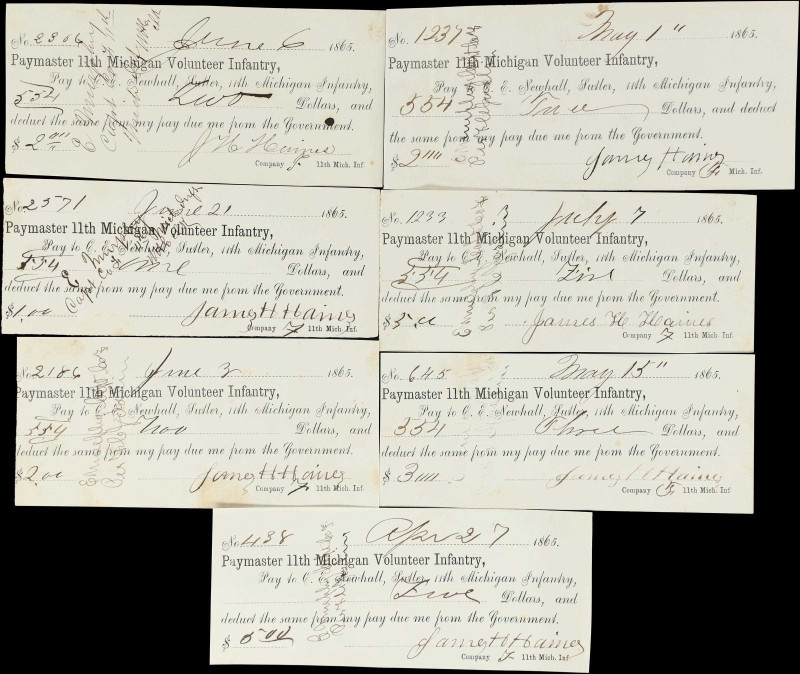 No. 2306 June 6 1865.
Paymaster 11th Michigan Volunteer Infantry,
Pay to C. E. Newhall, Sutler, 11th Michigan Infantry,
554 Two Dollars, and
deduct the same from my pay due me from the Government.
$ 2.00 J H Haines
Company F 11th Mich. Inf.
No. 1237 May 1" 1865.
Paymaster 11th Michigan Volunteer Infantry,
Pay to C. E. Newhall, Sutler, 11th Michigan Infantry,
554 Dollars, and deduct
the same from my pay due me from the Government.
$ 2.00 James Haines
Company F 11th Mich. Inf.
No. 2571 June 21 1865.
Paymaster 11th Michigan Volunteer Infantry,
Pay to C. E. Newhall, Sutler, 11th Michigan Infantry,
554 One Dollars, and
deduct the same from my pay due me from the Government.
$ 1.00 James H Haines
Company F 11th Mich. Inf.
No. 1233 July 7 1865.
Paymaster 11th Michigan Volunteer Infantry,
Pay to C. E. Newhall, Sutler, 11th Michigan Infantry,
554 Five Dollars, and
deduct the same from my pay due me from the Government.
$ 5.00 James H. Haines
Company F 11th Mich. Inf.
No. 2186 June 3 1865.
Paymaster 11th Michigan Volunteer Infantry,
Pay to C. E. Newhall, Sutler, 11th Michigan Infantry,
554 Two Dollars, and
deduct the same from my pay due me from the Government.
$ 2.00 James H Haines
Company F 11th Mich. Inf.
No. 645 May 15" 1865.
Paymaster 11th Michigan Volunteer Infantry,
Pay to C. E. Newhall, Sutler, 11th Michigan Infantry,
554 Three Dollars, and
deduct the same from my pay due me from the Government.
$ 3.00 James H Haines
Company F 11th Mich. Inf.
No. 438 Apr 27 1865.
Paymaster 11th Michigan Volunteer Infantry,
Pay to C. E. Newhall, Sutler, 11th Michigan Infantry,
Five Dollars, and
deduct the same from my pay due me from the Government.
$ 5.00 James H Haines
Company F 11th Mich. Inf.